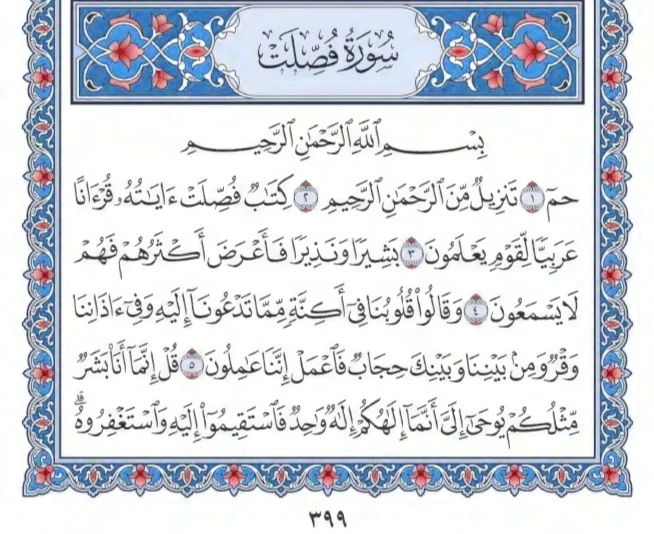 سُورَةُ فُصِّلَتْ
بِسْمِ ٱللَّهِ ٱلرَّحْمَٰنِ ٱلرَّحِيمِ
حمٓ ١ تَنزِيلٌ مِّنَ ٱلرَّحْمَٰنِ ٱلرَّحِيمِ ٢ كِتَٰبٌ فُصِّلَتْ ءَايَٰتُهُۥ قُرْءَانًا
عَرَبِيًّا لِّقَوْمٍ يَعْلَمُونَ ٣ بَشِيرًا وَنَذِيرًا فَأَعْرَضَ أَكْثَرُهُمْ فَهُمْ
لَا يَسْمَعُونَ ٤ وَقَالُوا۟ قُلُوبُنَا فِىٓ أَكِنَّةٍ مِّمَّا تَدْعُونَآ إِلَيْهِ وَفِىٓ ءَاذَانِنَا
وَقْرٌ وَمِنۢ بَيْنِنَا وَبَيْنِكَ حِجَابٌ فَٱعْمَلْ إِنَّنَا عَٰمِلُونَ ٥ قُلْ إِنَّمَآ أَنَا۠ بَشَرٌ
مِّثْلُكُمْ يُوحَىٰٓ إِلَىَّ أَنَّمَآ إِلَٰهُكُمْ إِلَٰهٌ وَٰحِدٌ فَٱسْتَقِيمُوٓا۟ إِلَيْهِ وَٱسْتَغْفِرُوهُ ۗ
٣٩٩